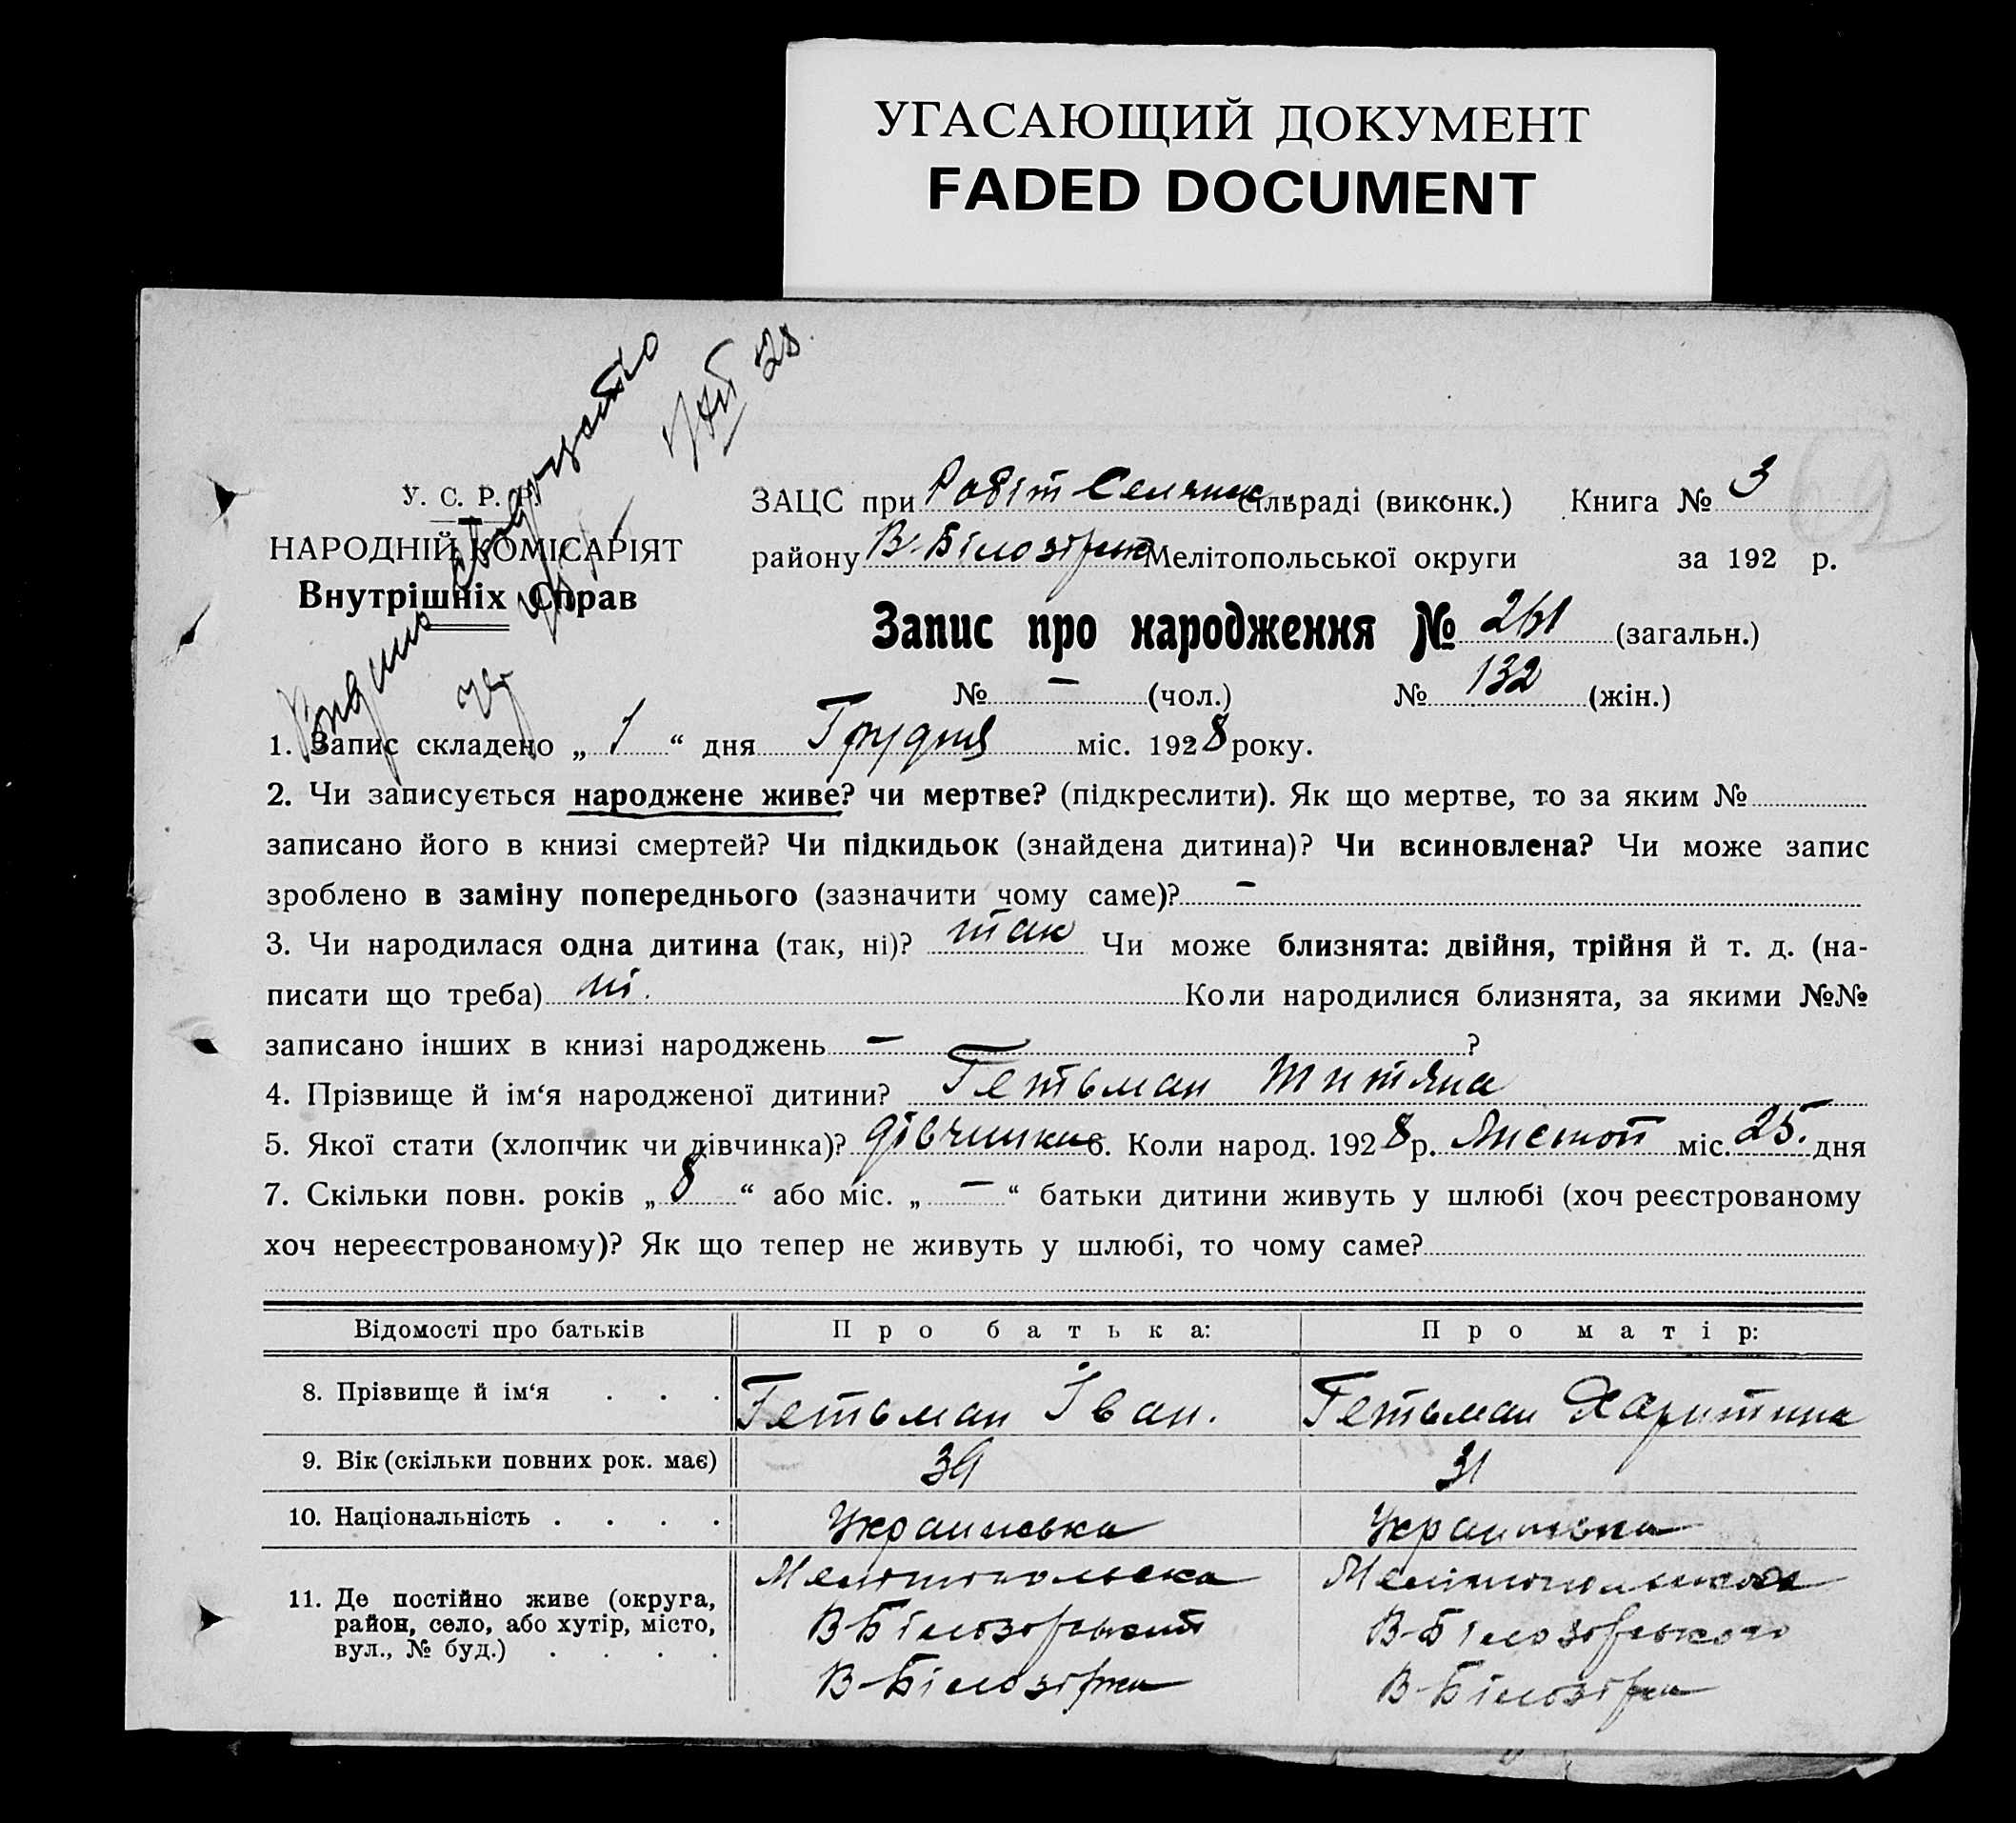 УГАСАЮЩИЙ ДОКУМЕНТ
FADED DOCUMENT
1/XII 28.
У. С. Р. Р.
НАРОДНІЙ КОМІСАРІЯТ
Внутрішніх Справ
ЗАЦС при Робіт-Селянск сільраді (виконк.) Книга № 3
району В-Білозірськ Мелітопольської округи за 192 р.
69
Запис про народження № 261 (загальн.)
№ — (чол.) № 132 (жін.)
1. Запис складено „ 1 “ дня Грудня міс. 1928 року.
2. Чи записується народжене живе? чи мертве? (підкреслити). Як що мертве, то за яким №
записано його в книзі смертей? Чи підкидьок (знайдена дитина)? Чи всиновлена? Чи може запис
зроблено в заміну попереднього (зазначити чому саме)? —
3. Чи народилася одна дитина (так, ні)? так Чи може близнята: двійня, трійня й т. д. (на-
писати що треба) ні. Коли народилися близнята, за якими №№
записано інших в книзі народжень — ?
4. Прізвище й ім‘я народженої дитини? Гетьман Титяна
5. Якої стати (хлопчик чи дівчинка)? дівчинка 6. Коли народ. 1928 р. Листоп міс. 25. дня
7. Скільки повн. років „ 8 “ або міс. „ — “ батьки дитини живуть у шлюбі (хоч реєстрованому
хоч нереєстрованому)? Як що тепер не живуть у шлюбі, то чому саме?
Відомості про батьків Про батька: Про матір:
8. Прізвище й ім‘я . . . Гетьман Іван. Гетьман Харитина
9. Вік (скільки повних рок. має) 39 31
10. Національність . . . . Украинська Украинська
11. Де постійно живе (округа, район, село, або хутір, місто, вул., № буд.) . . . .
Мелітопольска Мелітопольского
В-Білозорський В-Білозорського
В-Білозірка В-Білозірка